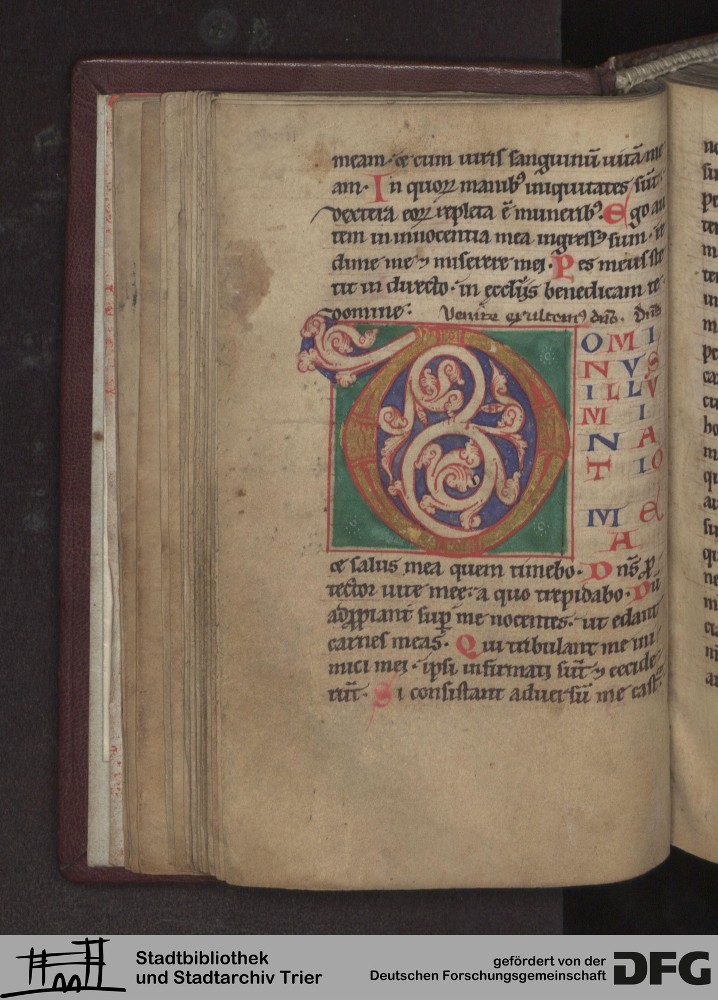 meam · ⁊ cum uiris sanguinū uitā me
am · In quoꝝ manibꝰ iniquitates sūt ·
dextera eoꝝ repleta ē muneribꝰ. Ego au
tem in innocentia mea ingressꝰ sum · re
dime me ⁊ miserere mei · Pes meus ste
tit in directo · in ecclijs benedicam te
domine · Venite exultemꝰ dn̄o.
D OMI
NVS
ILLV
MI
NA
TIO
MEA
te salus mea quem timebo · Dn̄s ꝓ
tector uite mee · a quo trepidabo · Dū
appropiant suꝑ me nocentes · ut edant
carnes meas · Qui tribulant me ini
mici mei · ipsi infirmati sūt ⁊ cecide
rūt · Si consistant aduersū me cast
Stadtbibliothek
und Stadtarchiv Trier
gefördert von der
Deutschen Forschungsgemeinschaft
DFG